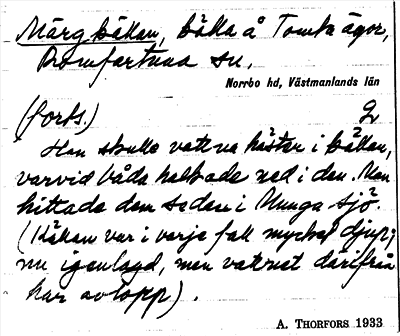 Märgkällan, källa å Tomta ägor,
Romfartuna sn.
Norrbo hd, Västmanlands län
(forts.) 2
Han skulle vattna häster i källan,
varvid båda halkade ned i den. Man
hittade dem sedan i Munga sjö.
(Källan var i varje fall mycket djup;
nu igenlagd, men vattnet därifrån
har avlopp).
A. THORFORS 1933